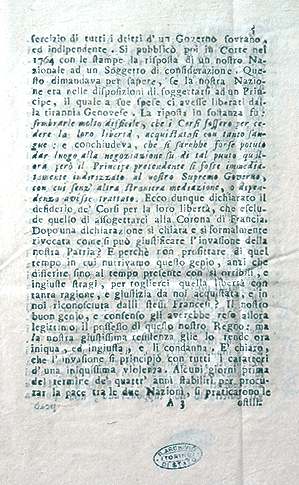 5
sercizio di tutti i dritti d' un Governo sovrano,
ed indipendente. Si pubblicò poi in Corte nel
1764 con le stampe la risposta di un nostro Na-
zionale ad un Soggetto di considerazione. Que-
sto dimandava per sapere, se la nostra Nazio-
ne era nelle disposizioni di soggettarsi ad un Prin-
cipe, il quale a sue spese ci avesse liberati dal-
la tirannia Genovese. La riposta in sostanza fu :
sembrarle molto difficile, che i Corsi fossero per ce-
dere la loro libertà, acquistatasi con tanto san-
gue : e conchiudeva, che si sarebbe forse potuto
dar luogo alla negoziazione su di tal punto qualo-
ra però il Principe pretendente si fosse immedia-
tamente indirizzato al nostro Supremo Governo,
con cui senz' altra straniera mediazione, o dipen-
denza avesse trattato. Ecco dunque dichiarato il
desiderio de' Corsi per la loro libertà, che es-
clude quello di assogettarci alla Corona di Francia.
Dopo una dichiarazione sì chiara e sì formalmente
rivocata come si può giustificare l'invasione della
nostra Patria? E perchè non profittare di quel
tempo in cui nutrivamo questo genio, anzi che
differire sino al tempo presente con sì orribili, e
ingiuste stragi, per toglierci quella libertà con
tante ragione, e giustizia da noi acquistata, e in
noi riconosciuta dalli stessi Francesi? Il nostro
buon genio, e consenso gli averebbe reso allora
legittimo il possesso di questo nostro Regno: ma
sa nostra giustissima renitenza glie lo rende ora
iniqua, ed ingiusta, e li condanna. E' chiaro,
che l'invasione si principiò con tutti i caratteri
d' una iniquissima violenza. Alcuni giorni prima
del termine de' quattr' anni stabiliti per procu-
rar la pace tra le due Nazioni, si praticarono le
A 3 ostili-
ARCHIVIO
TORINO
DI STATO